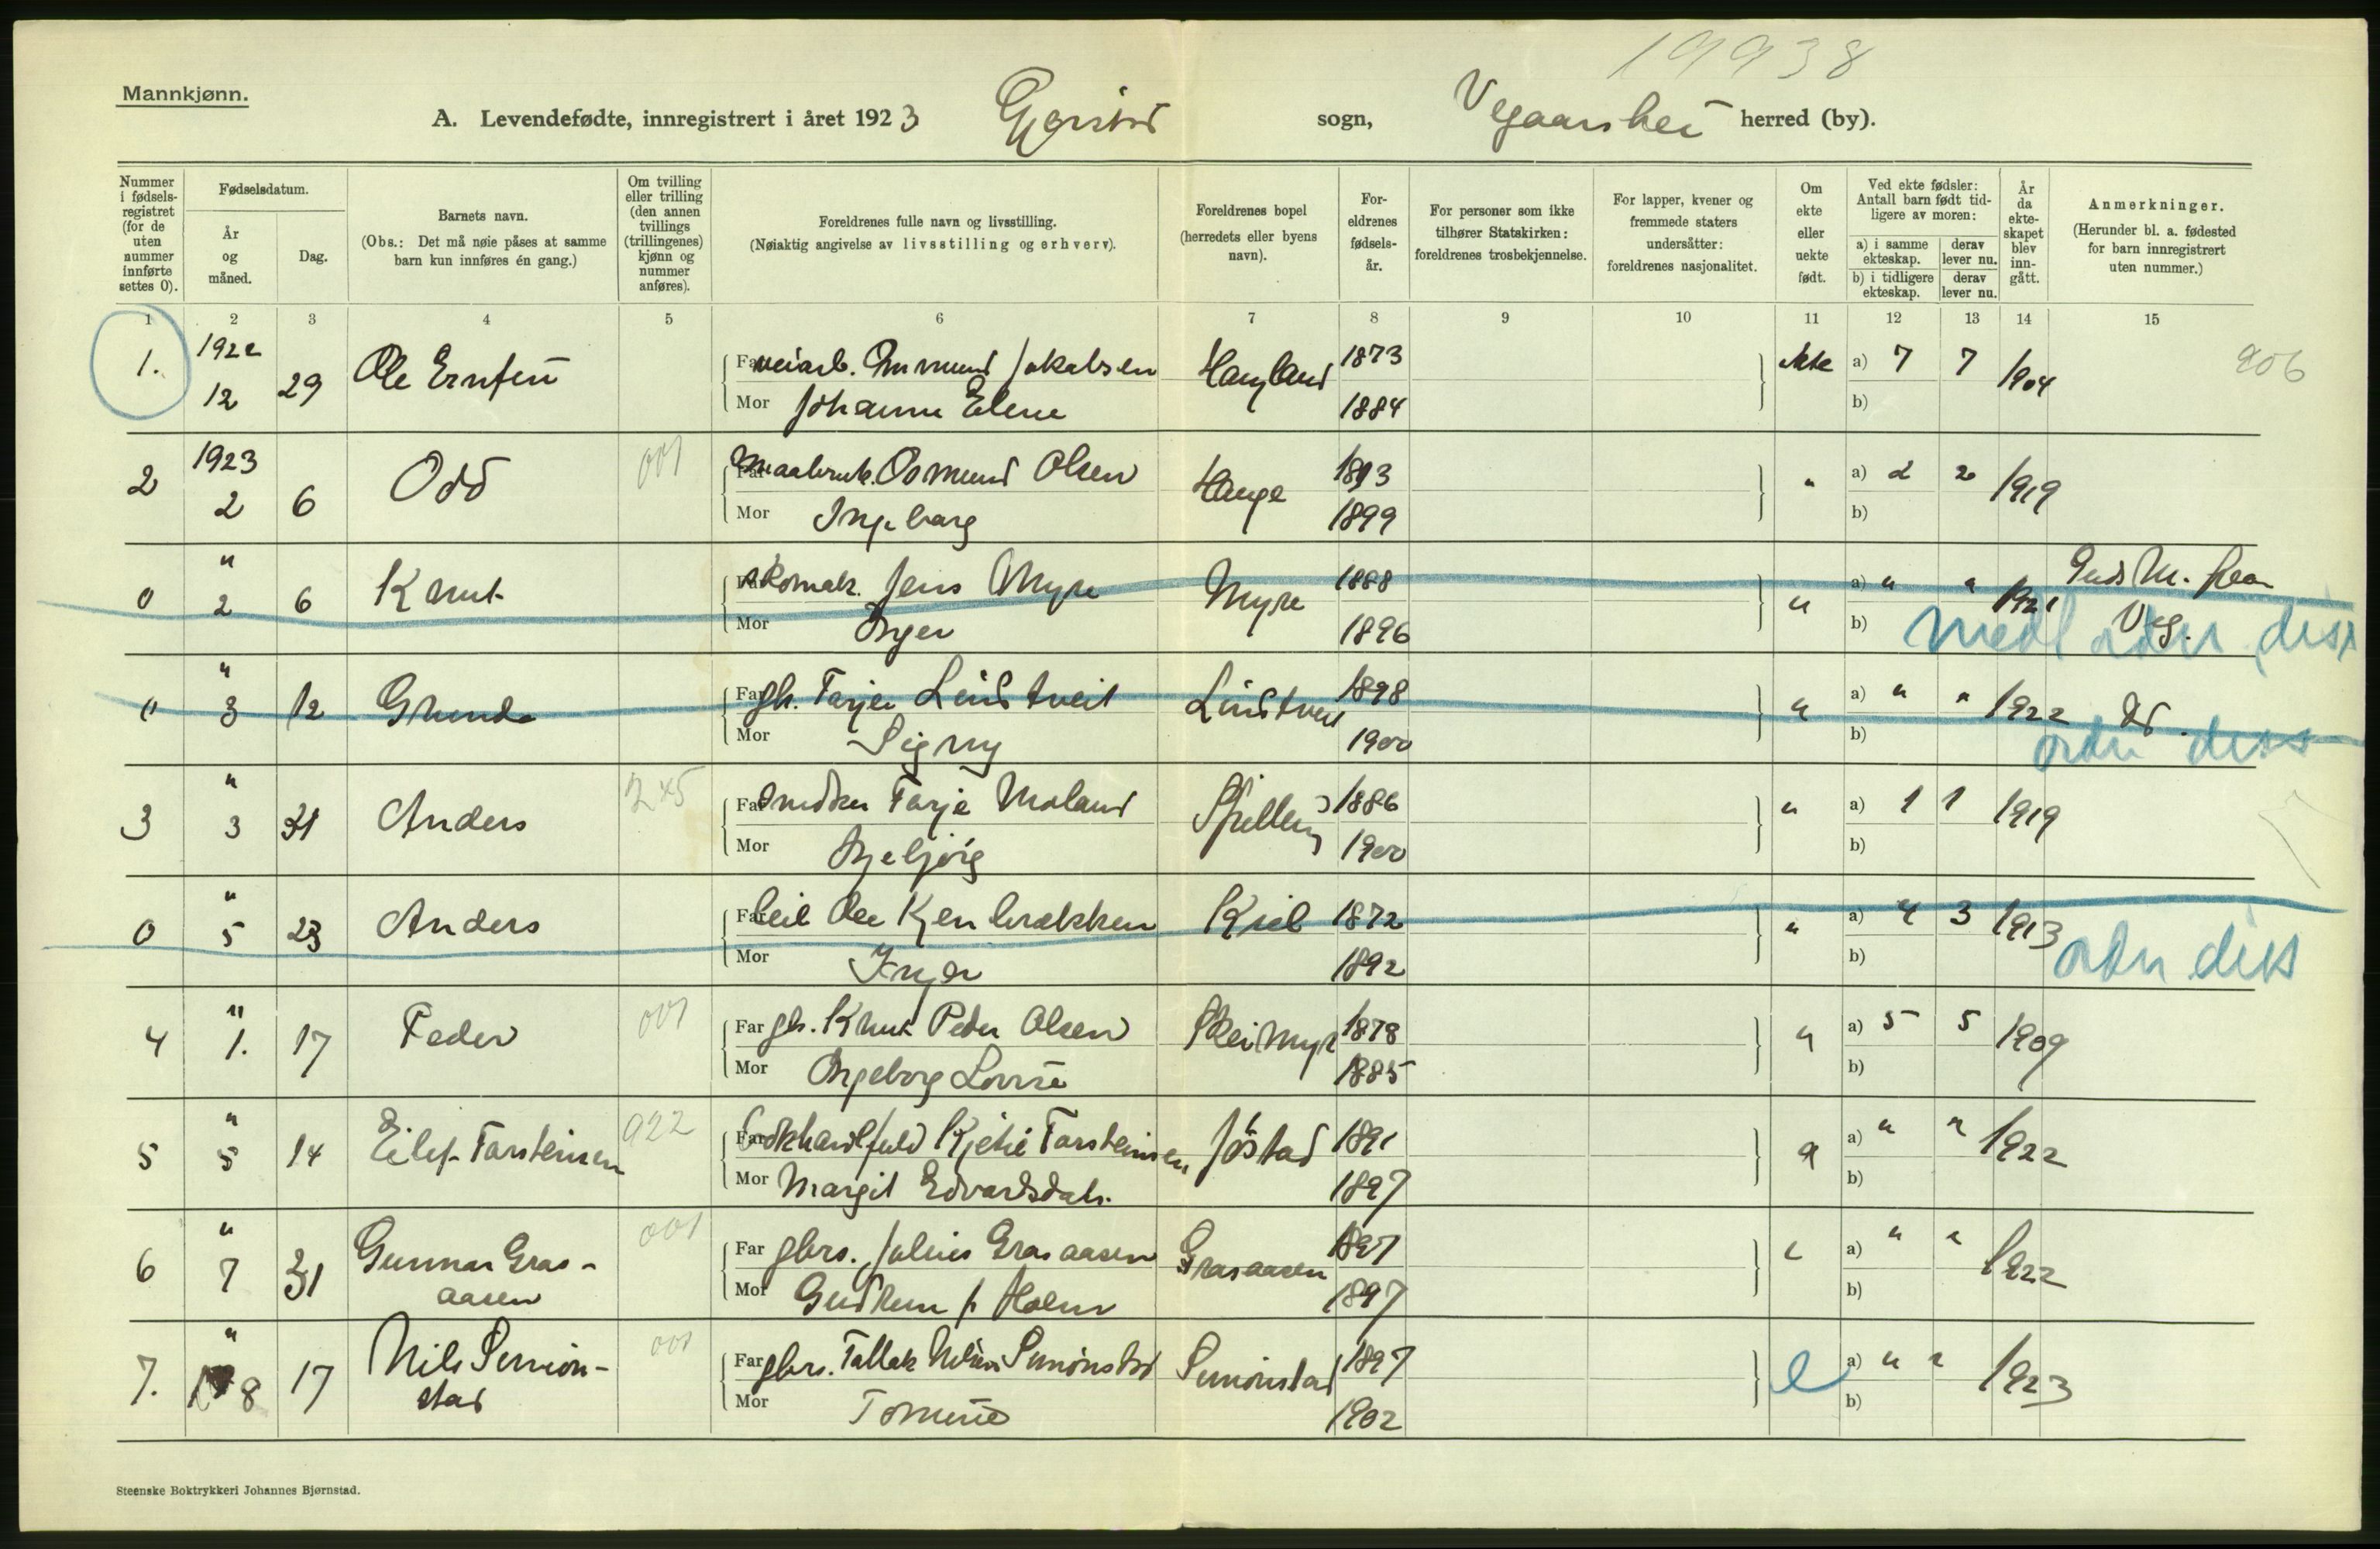 19938
Mannkjønn.
A. Levendefødte, innregistrert i året 1923 Gjerstad sogn, Vegaarshei herred (by).
Nummer i fødsels-registret (for de uten nummer innførte settes 0).
Fødselsdatum.
År og måned.
Dag.
Barnets navn.
(Obs.: Det må nøie påses at samme barn kun innføres én gang.)
Om tvilling eller trilling (den annen tvillings (trillingenes) kjønn og nummer anføres).
Foreldrenes fulle navn og livsstilling.
(Nøiaktig angivelse av livsstilling og erhverv).
Foreldrenes bopel (herredets eller byens navn).
For-eldrenes fødsels-år.
For personer som ikke tilhører Statskirken: foreldrenes trosbekjennelse.
For lapper, kvener og fremmede staters undersåtter: foreldrenes nasjonalitet.
Om ekte eller uekte født.
Ved ekte fødsler: Antall barn født tid-ligere av moren:
a) i samme ekteskap. derav lever nu.
b) i tidligere ekteskap. derav lever nu.
År da ekte-skapet blev inn-gått.
Anmerkninger.
(Herunder bl. a. fødested for barn innregistrert uten nummer.)
1 2 3 4 5 6 7 8 9 10 11 12 13 14 15
1. 1922 12 29 Ole Far veiarb. Jakobsen 1873 ekte a) 7 7 1904 906
Mor Johanne Elene 1884 b)
2 1923 2 6 Odd 001 Far Osmund Olsen Hauge 1893 " a) 2 2 1919
Mor Ingeborg 1899 b)
0 " 2 6 Knut Far skomak. Jens Myre Myre 1888 " a) " " 1921
Mor Inger 1896 b) Veg.
0 " 3 12 Far gb. Tarjei Lindtveit Lindtveit 1898 " a) " " 1922 do.
Mor Signy 1900 b)
3 " 3 31 Anders 245 Far snedker Tarje Moland 1886 " a) 1 1 1919
Mor Ingebjørg 1900 b)
0 " 5 23 Anders Far Ole 1872 " a) 4 3 1913
Mor Inger 1892 b)
4 " 1. 17 Peder 001 Far gb. Knut Peder Olsen Skeimyr 1878 " a) 5 5 1909
Mor Ingeborg Lovise 1885 b)
5 " 5 14 Eilef Tarsteinsen 922 Far Kjetil Tarsteinsen Jøstad 1891 " a) " " 1922
Mor Margit Edvardsdatr. 1897 b)
6 " 7 31 Gunnar Gras-
aasen 001 Far gbrs. Julius Grasaasen Grasaasen 1897 " a) " " 1922
Mor Gudrun f. Holm 1897 b)
7. " 8 17 Nils Simon-
stad 001 Far gbrs. Tallak Nilsen Simonstad Simonstad 1897 e a) " " 1923
Mor Tomine 1902 b)
Steenske Boktrykkeri Johannes Bjørnstad.